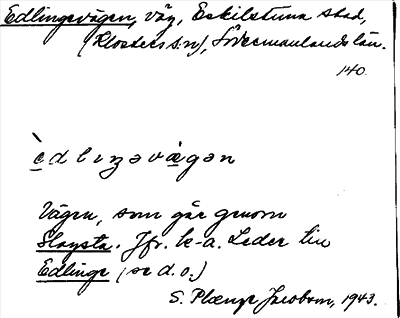 Edlingevägen, väg, Eskilstuna stad,
(Klosters sn), Södermanlands län.
140.
è̱dlıŋəvæ̱̀gən
Vägen, som går genom
Slagsta. Jfr. k-a. Leder till
Edlinge (se d.o.)
S. Plænge Jacobson, 1943.